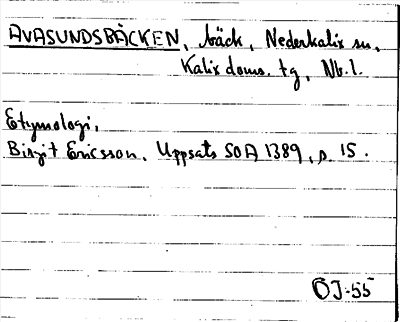 AVASUNDSBÄCKEN, bäck, Nederkalix sn,
Kalix doms. tg, Nb.l.
Etymologi,
Birgit Ericsson, Uppsats SOA 1389, s. 15.
ÖJ-55